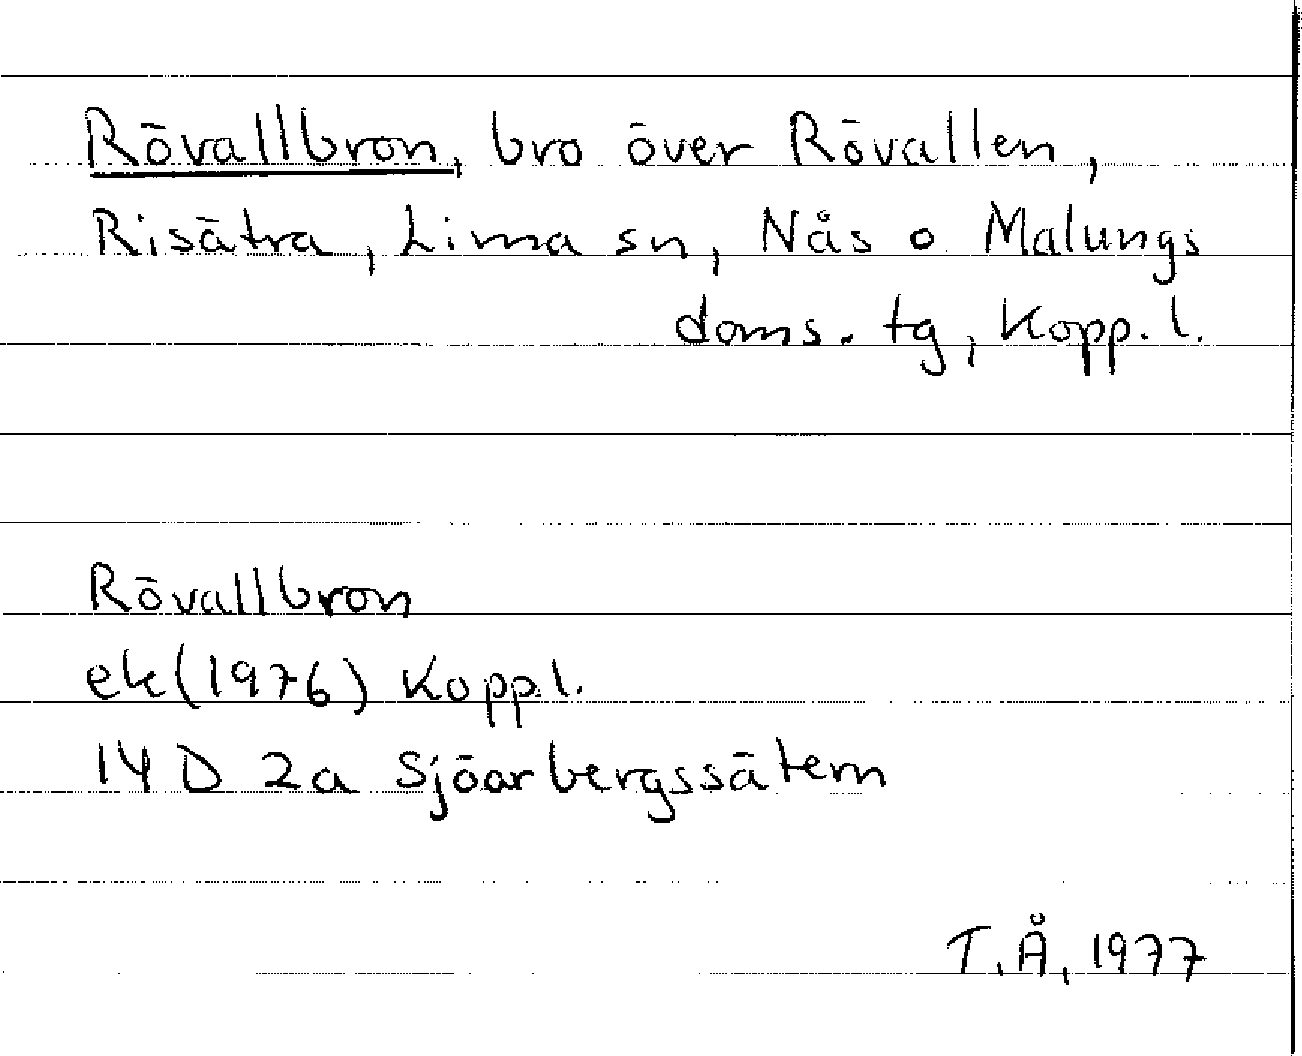 Rövallbron, bro över Rövallen,
Risätra, Lima sn, Nås o Malungs
doms. tg, Kopp. l.
Rövallbron
ek (1976) Kopp. l.
14 D 2a Sjöarbergssätern
T.Å, 1977